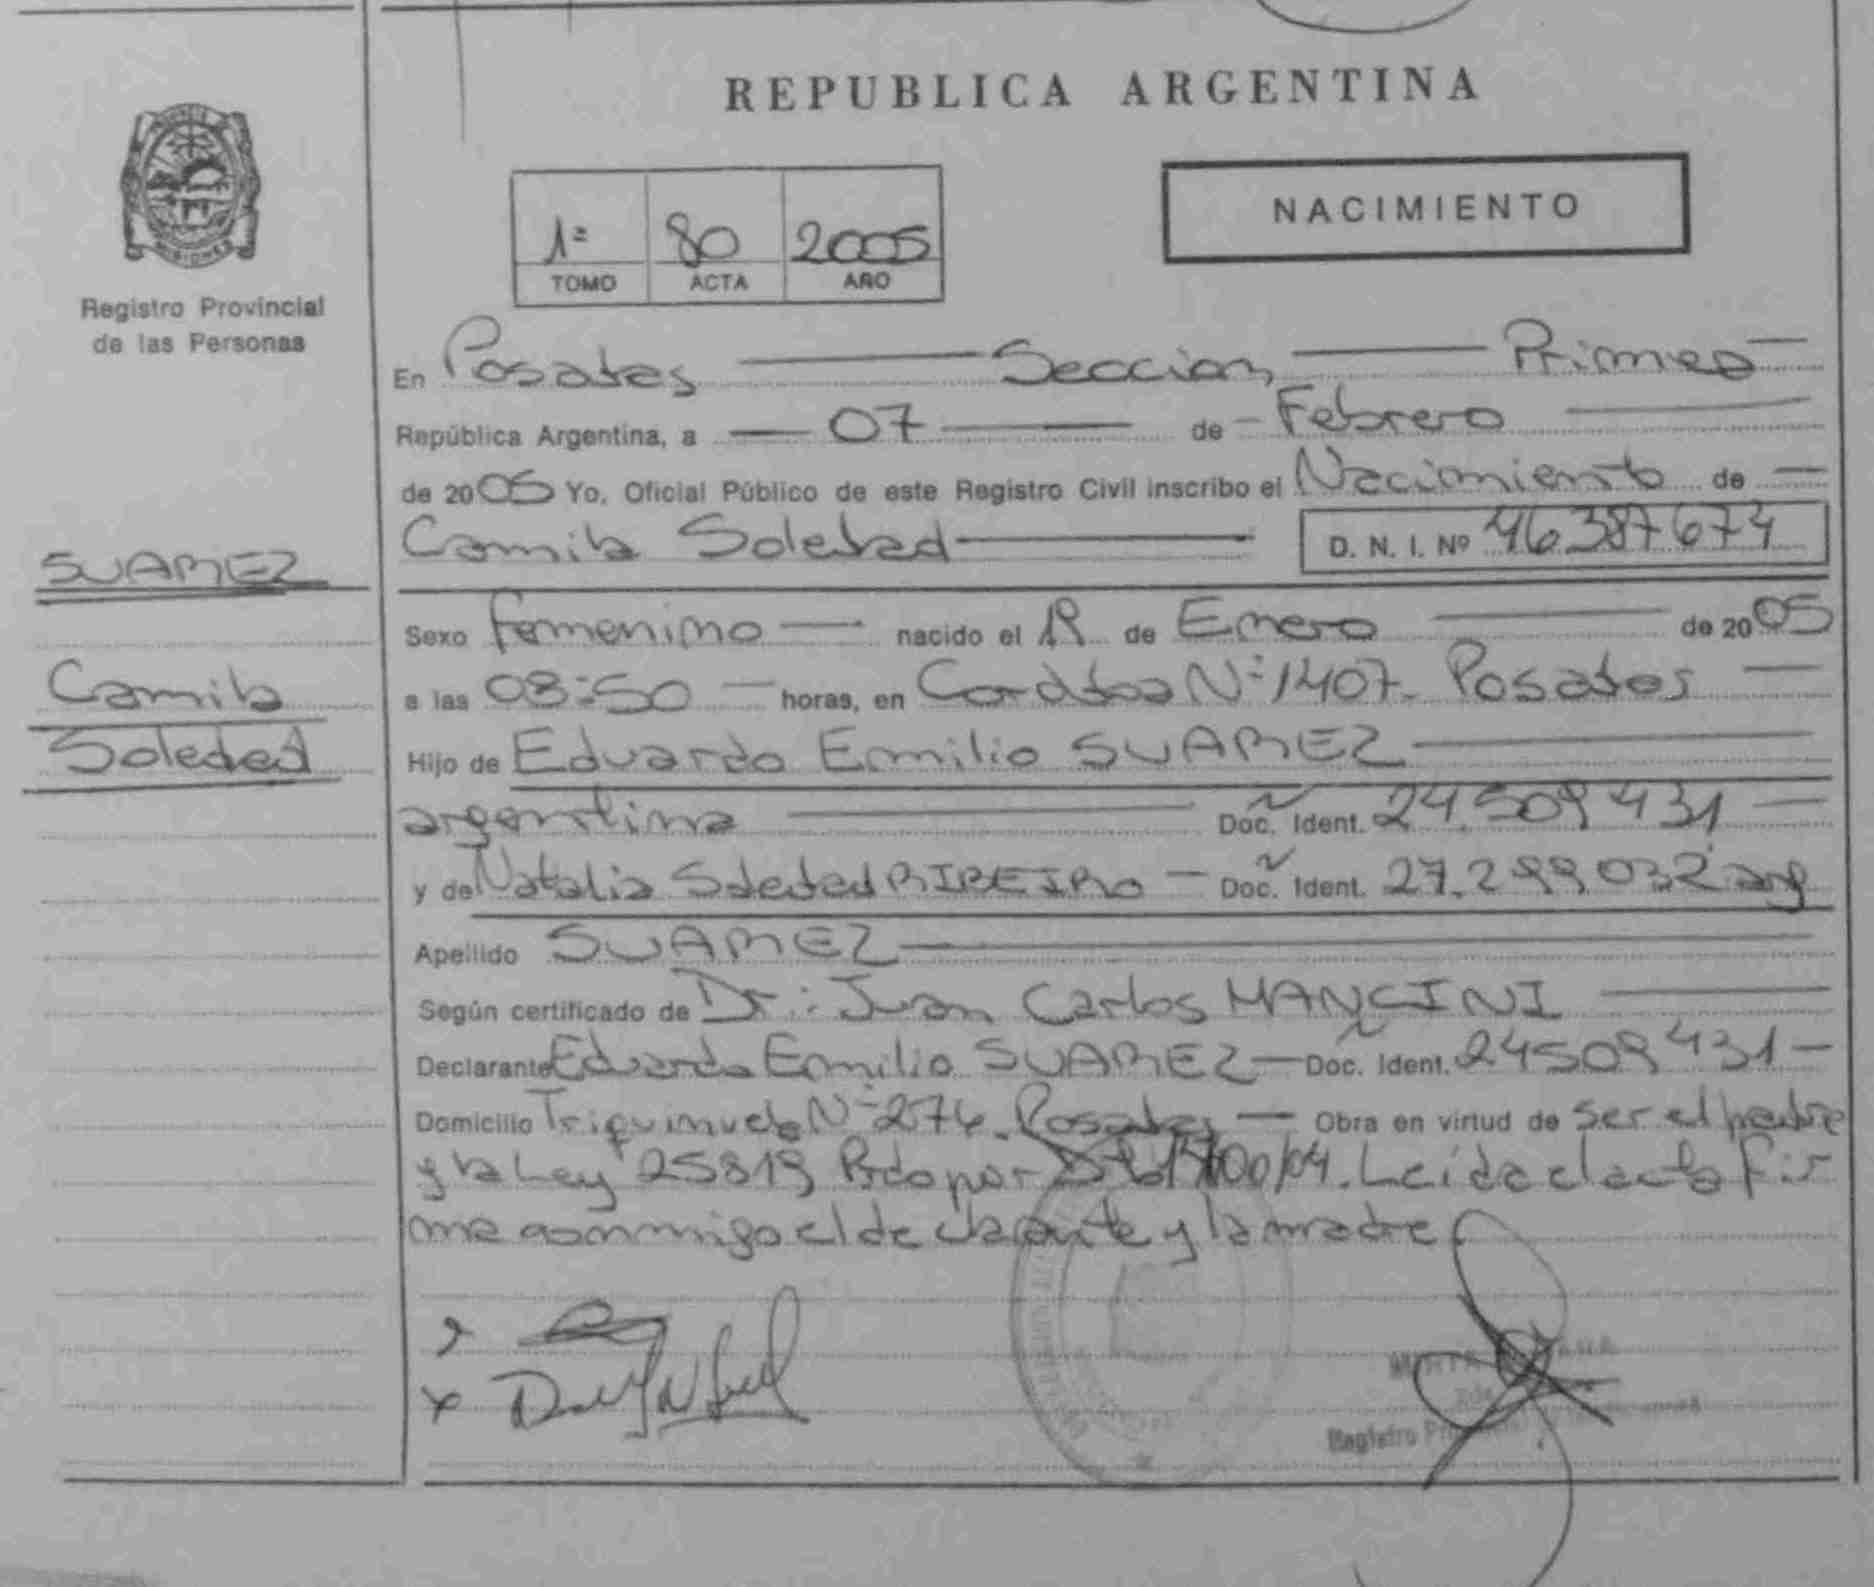 REPUBLICA ARGENTINA
MISIONES
Registro Provincial
de las Personas
1ª 80 2005
TOMO ACTA AÑO
NACIMIENTO
En Posadas Seccion Primera
República Argentina, a 07 de Febrero
de 2005 Yo, Oficial Público de este Registro Civil inscribo el Nacimiento de
Camila Soledad D. N. I. Nº 46387674
SUAREZ
Camila
Soledad
Sexo femenino nacido el 19 de Enero de 2005
a las 08:50 horas, en Cordoba Nº 1407. Posadas
Hijo de Eduardo Emilio SUAREZ
argentina Doc. Ident. 24.509431
y de Natalia Soledad RIBEIRO Doc. Ident. 27.299.032 arg
Apellido SUAREZ
Según certificado de Dr.: Juan Carlos MANCINI
Declarante Eduardo Emilio SUAREZ Doc. Ident. 24509431
Domicilio Nº 274. Posadas Obra en virtud de ser el padre
y la Ley 25819 por Leida el acta fir
ma conmigo el declarante y la madre
Registro